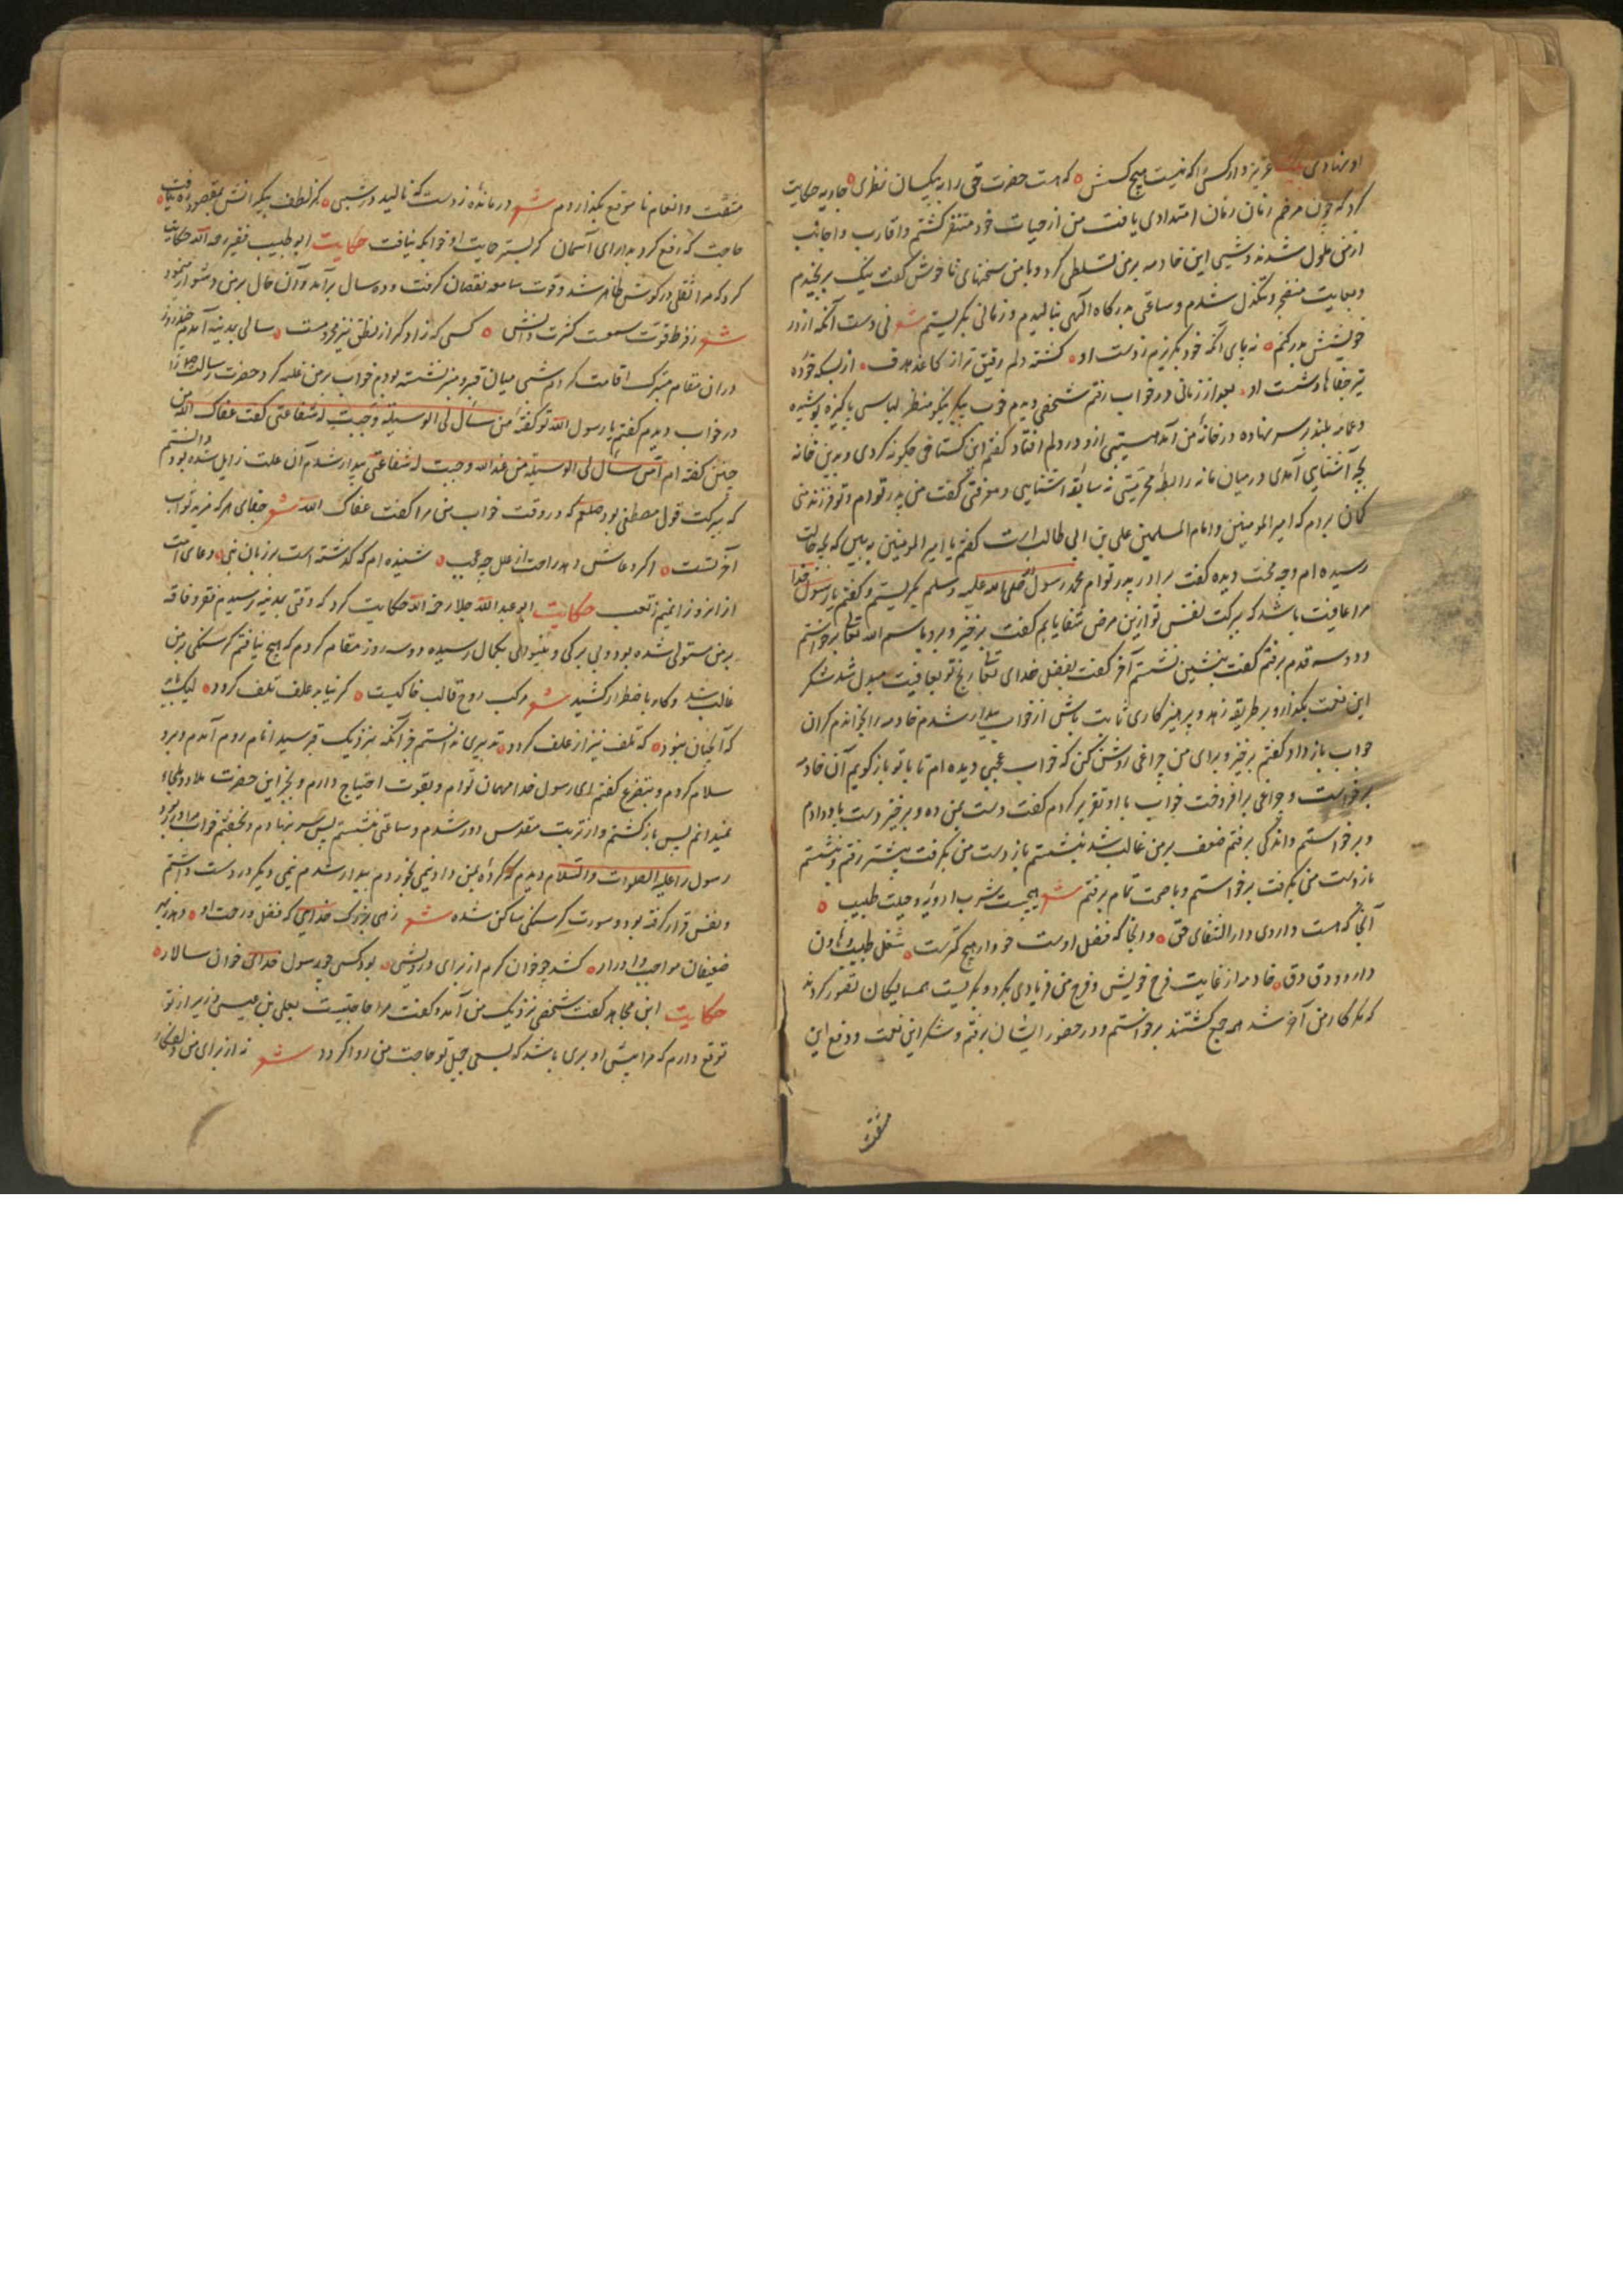 او نهادی بیت عزیز دار کسی را که نیست هیچ کسش که هست حضرت حق را به بیکسان نظری جاریه حکایت
کرد که چون مرضم زمان زمان امتدادی یافت من از حیات خود متنفر گشتم و اقارب و اجانب
از من ملول شدند و شبی این خادمه بر من تسلطی کرد و با من سخنهای ناخوش گفت نیک برنجیدم
و بغایت منضجر و متکدل شدم و ساعتی بدرگاه الهی بنالیدم و زمانی بگریستم شعر نی دست آنکه از در
خویشش بدر کنم نه پای آنکه خود بگریزم ز دست او گشته دلم رقیق تر از کاغذ هدف از بسکه خورده
تیر جفاها ز شست او بعد از زمانی در خواب رفتم شخصی دیدم خوب پیکر نیکو منظر لباسی پاکیزه پوشیده
و عمامه بلند بر سر نهاده در خانه من آمد هیبتی ازو در دلم افتاد گفتم این گستاخی چگونه کردی و بدین خانه
بچه آشنایی آمدی در میان ما نه رابطه محرمیتی نه سابقه آشنایی و معرفتی گفت من پدر توام و تو فرزند منی
گمان بردم که امیر المومنین و امام المسلمین علی بن ابی طالب است گفتم یا امیر المومنین ببین که بچه حالت
رسیده ام و چه محنت دیده گفت برادر پدر توام محمد رسول الله صلی الله علیه وسلم بگریستم و گفتم یا رسول خدا
مرا عافیت باشد که ببرکت نفس تو ازین مرض شفا یابم گفت برخیز و برو بسم الله تعالی برخواستم
و دو سه قدم برفتم گفت بنشین نشستم آخر گفت بفضل خدای تعالی رنج تو بعافیت مبدل شد شکر
این نعمت بگذار و بر طریقه زهد و پرهیزگاری ثابت باش از خواب بیدار شدم خادمه را بخواندم گران
جواب باز داد گفتم برخیز و برای من چراغی روشن کن که خواب عجبی دیده ام تا با تو باز گویم آن خادمه
برخواست و چراغی برافروخت خواب با او تقریر کردم گفت دست بمن ده و برخیز دست باو دادم
و برخواستم و اندکی برفتم ضعف بر من غالب شد بنشستم باز دست من بگرفت پیشتر رفتم و بنشستم
باز دست من بگرفت برخواستم و با صحت تمام برفتم شعر هیچست شرب ادویه و حیلت طبیب
آنجا که هست داروی دار الشفای حق وانجا که فضل اوست خوار هیچ کمترست شغل طبیب و هاون
دارو و دق دق خادمه از غایت فرح خویش و فرح من فریادی بکرد و بگریست همسایگان تصور کردند
که مگر کار من آخر شد همه جمع گشتند برخواستم و در حضور ایشان برفتم و شکر این نعمت و دفع این
مشقت
مشقت و انعام نا موقع بگذاردم شعر درمانده ز دست که نالید در شبی کز لطف بیکرانش بمقصود ره نیافت
حاجت که رفع کرد بدارای آسمان کز بستر حاجت او خوابگه نیافت حکایت ابو طبیب فقیر رحمه الله حکایت
کرد که مرا ثقلی در گوش ظاهر شد و قوت سامعه نقصان گرفت و ده سال برآمد و آن حال بر من دشوار می نمود
شعر ز فرط قوت سمعست کثرت دانش کسی که زاد کر از نطق نیز محرومست سالی بمدینه آمدم
دران مقام متبرک اقامت کردم شبی میان قبر و منبر نشسته بودم خواب بر من غلبه کرد حضرت رسالت را
در خواب دیدم گفتم یا رسول الله تو گفته من سأل لی الوسیلة وجبت له شفاعتی گفت عفاک الله من
چنین نگفته ام من سأل لی الوسیلة من عند الله وجبت له شفاعتی بیدار شدم آن علت زایل شده بود دانستم
که ببرکت قول مصطفی بود صلعم که در وقت خواب من مرا گفت عفاک الله شعر جفای هر که مزید ثواب
آخرتست اگر دعاش دهد راحت از علل چه عجب شنیده ام که گذشته است بر زبان نبی دعای امت
ازان روز انیم ز تعب حکایت ابو عبد الله جلا رحمه الله حکایت کرد که وقتی بمدینه رسیدم فقر و فاقه
بر من مستولی شده بود و بی برگی و بینوائی بکمال رسیده دو سه روز مقام کردم که هیچ نیافتم گرسنگی بر من
غالب شد و کار باضطرار کشید شعر مرکب روح قالب خاکیست گر نیابد علف تلف گردد لیک باید
که آنچنان نبود که تلف نیز از علف گردد تدبیری ندانستم جز آنکه بنزدیک قبر سید انام روم آمدم و برو
سلام کردم و بتضرع گفتم ای رسول خدا مهمان توام و بقوت احتیاج دارم و بجز این حضرت ملاذ و ملجاء
نمیدانم پس باز گشتم و از تربت مقدس دور شدم و ساعتی بنشستم پس سر بنهادم و بخفتم خواب مرا در ربود
رسول را علیه الصلوات والسلام دیدم که گرده بمن داد نیمی بخوردم بیدار شدم نیمی دیگر در دست داشتم
و نفس قرار گرفته بود و سورت گرسنگی ساکن شده شعر زهی بزرگ خدایی که فضل و رحمت او دهد بهر
ضعیفان مواجب و ادرار کشد چو خوان کرم از برای درویش بود کسی چو رسول خدای خوان سالار
حکایت ابن مجاهد گفت شخصی نزدیک من آمد و گفت مرا حاجتیست بعلی بن عیسی وزیر از تو
توقع دارم که مرا پیش او بری باشد که بسعی جمیل تو حاجت من روا گردد شعر نه از برای من